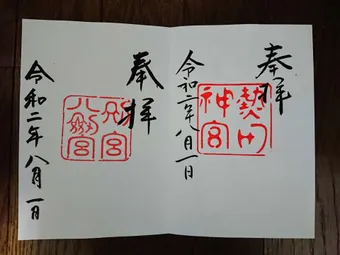 奉拝
熱田神宮
令和二年八月一日
奉拝
別宮八剣宮
令和二年八月一日